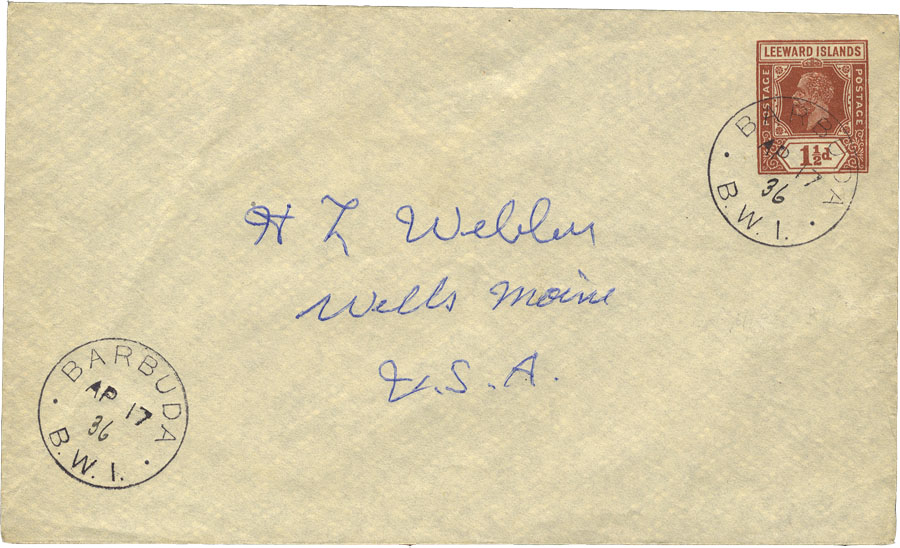 LEEWARD ISLANDS
POSTAGE
POSTAGE
1½d
BARBUDA
AP 17
36
B.W.I.
H L Webber
Wells Maine
U.S.A.
BARBUDA
AP 17
36
B.W.I.